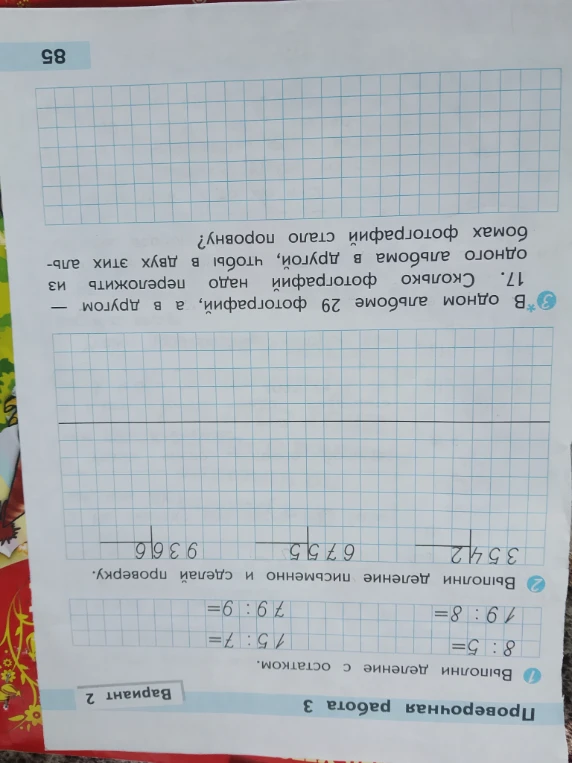 Проверочная работа 3
Вариант 2
1 Выполни деление с остатком.
8 : 5= 15 : 7=
19 : 8= 79 : 9=
2 Выполни деление письменно и сделай проверку.
354 2 675 5 936 6
3* В одном альбоме 29 фотографий, а в другом —
17. Сколько фотографий надо переложить из
одного альбома в другой, чтобы в двух этих аль-
бомах фотографий стало поровну?
85